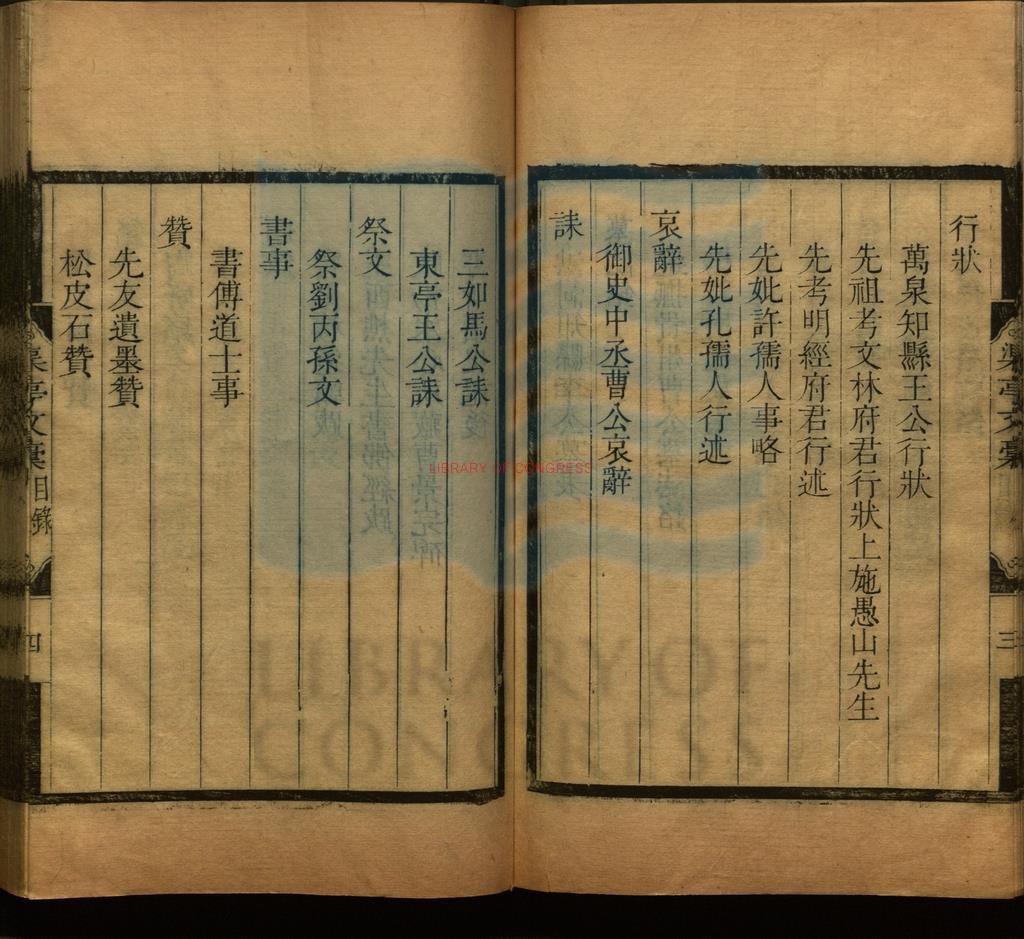 行狀
萬泉知縣王公行狀
先祖考文林府君行狀上施愚山先生
先考明經府君行述
先妣許孺人事略
先妣孔孺人行述
哀辭
御史中丞曹公哀辭
誄
三如馬公誄
東亭王公誄
祭文
祭劉丙孫文
書事
書傅道士事
贊
先友遺墨贊
松皮石贊
渠亭文稾
三
渠亭文稾目錄
四
LIBRARY OF CONGRESS
LIBRARY OF
CONGRESS